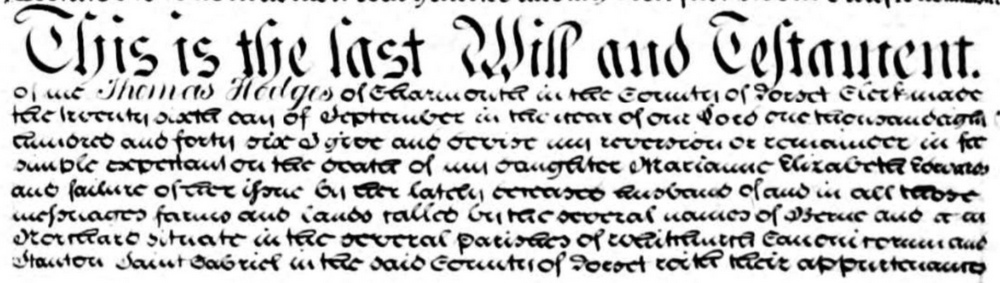 This is the last Will and Testament.
of me Thomas Hodges of Charmouth in the County of Dorset Clerk made
the twenty sixth day of September in the year of our Lord one thousand eight
hundred and forty six I give and devise my reversion or remainder in fee
simple expectant on the death of my daughter Marianne Elizabeth
and failure of her issue by her lately deceased husband of and in all those
messuages farms and lands called by the several names of Berne and
situate in the several parishes of Whitchurch Canonicorum and
Stanton Saint Gabriel in the said County of Dorset with their appurtenances